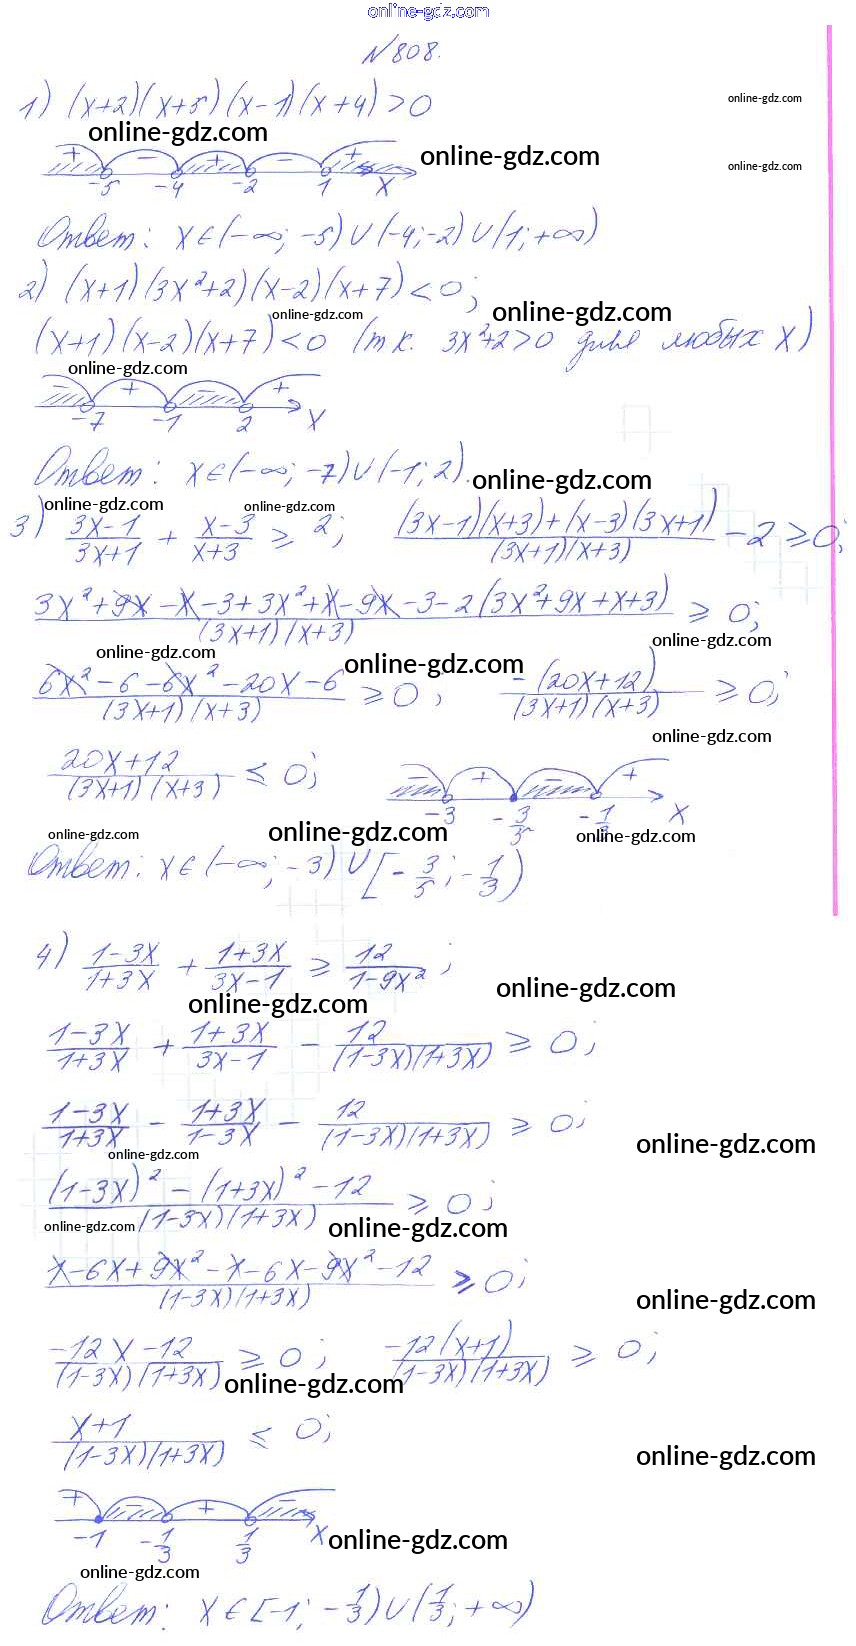 online-gdz.com
N808.
1) (x+2)(x+5)(x-1)(x+4)>0
online-gdz.com
online-gdz.com
online-gdz.com
online-gdz.com
+ - + - +
-5 -4 -2 1 x
Ответ: x∈(-∞; -5)∪(-4;-2)∪(1;+∞)
2) (x+1)(3x²+2)(x-2)(x+7)<0;
online-gdz.com
online-gdz.com
(x+1)(x-2)(x+7)<0 (т.к. 3x²+2>0 для любых x)
online-gdz.com
- + - +
-7 -1 2 x
Ответ: x∈(-∞; -7)∪(-1; 2).
online-gdz.com
online-gdz.com
online-gdz.com
3) (3x-1)/(3x+1) + (x-3)/(x+3) ≥ 2; ((3x-1)(x+3)+(x-3)(3x+1))/((3x+1)(x+3)) - 2 ≥ 0;
(3x²+9x-x-3+3x²+x-9x-3-2(3x²+9x+x+3))/((3x+1)(x+3)) ≥ 0;
online-gdz.com
online-gdz.com
online-gdz.com
(6x²-6-6x²-20x-6)/((3x+1)(x+3)) ≥ 0; -(20x+12)/((3x+1)(x+3)) ≥ 0;
online-gdz.com
(20x+12)/((3x+1)(x+3)) ≤ 0;
- + - +
-3 -3/5 -1/3 x
online-gdz.com
online-gdz.com
online-gdz.com
Ответ: x∈(-∞; -3)∪[-3/5; -1/3)
4) (1-3x)/(1+3x) + (1+3x)/(3x-1) ≥ 12/(1-9x²);
online-gdz.com
online-gdz.com
(1-3x)/(1+3x) + (1+3x)/(3x-1) - 12/((1-3x)(1+3x)) ≥ 0;
(1-3x)/(1+3x) - (1+3x)/(1-3x) - 12/((1-3x)(1+3x)) ≥ 0;
online-gdz.com
online-gdz.com
((1-3x)²-(1+3x)²-12)/((1-3x)(1+3x)) ≥ 0;
online-gdz.com
online-gdz.com
(1-6x+9x²-1-6x-9x²-12)/((1-3x)(1+3x)) ≥ 0;
online-gdz.com
(-12x-12)/((1-3x)(1+3x)) ≥ 0; -12(x+1)/((1-3x)(1+3x)) ≥ 0;
online-gdz.com
(x+1)/((1-3x)(1+3x)) ≤ 0;
online-gdz.com
+ - + -
-1 -1/3 1/3 x
online-gdz.com
online-gdz.com
Ответ: x∈[-1; -1/3)∪(1/3; +∞)